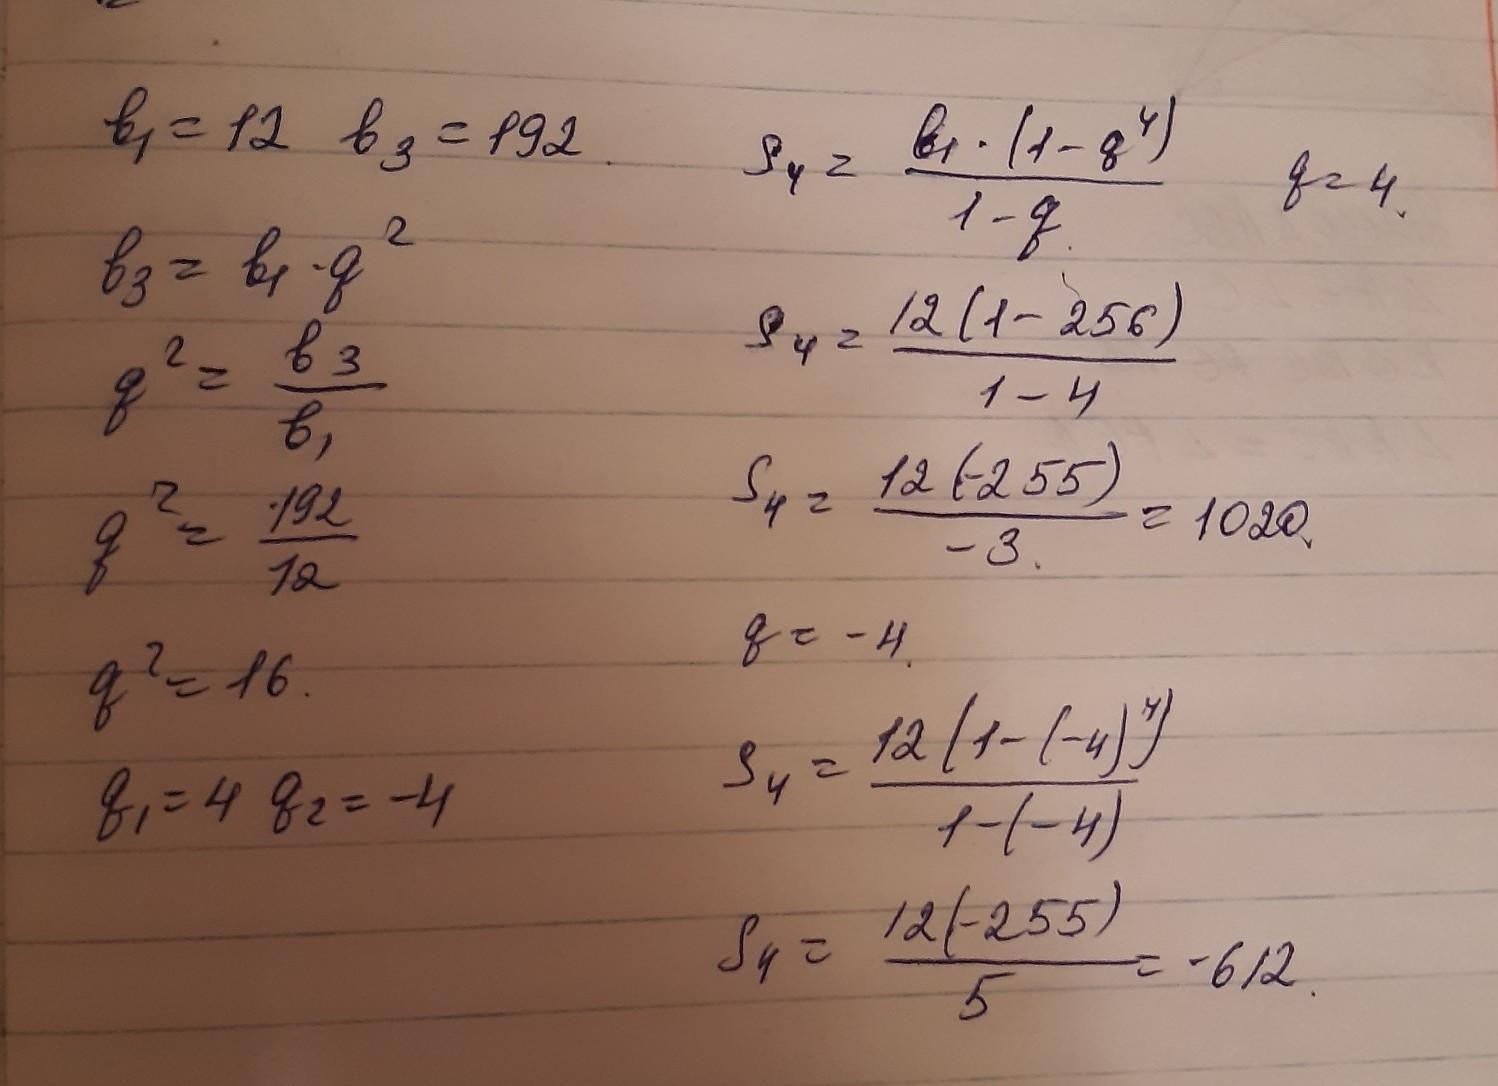 b₁ = 12 b₃ = 192.
b₃ = b₁ · q²
q² = b₃ / b₁
q² = 192 / 12
q² = 16.
q₁ = 4 q₂ = -4
S₄ = b₁ · (1 - q⁴) / 1 - q. q = 4.
S₄ = 12 (1 - 256) / 1 - 4
S₄ = 12 (-255) / -3. = 1020.
q = -4.
S₄ = 12 (1 - (-4)⁴) / 1 - (-4)
S₄ = 12 (-255) / 5 = -612.